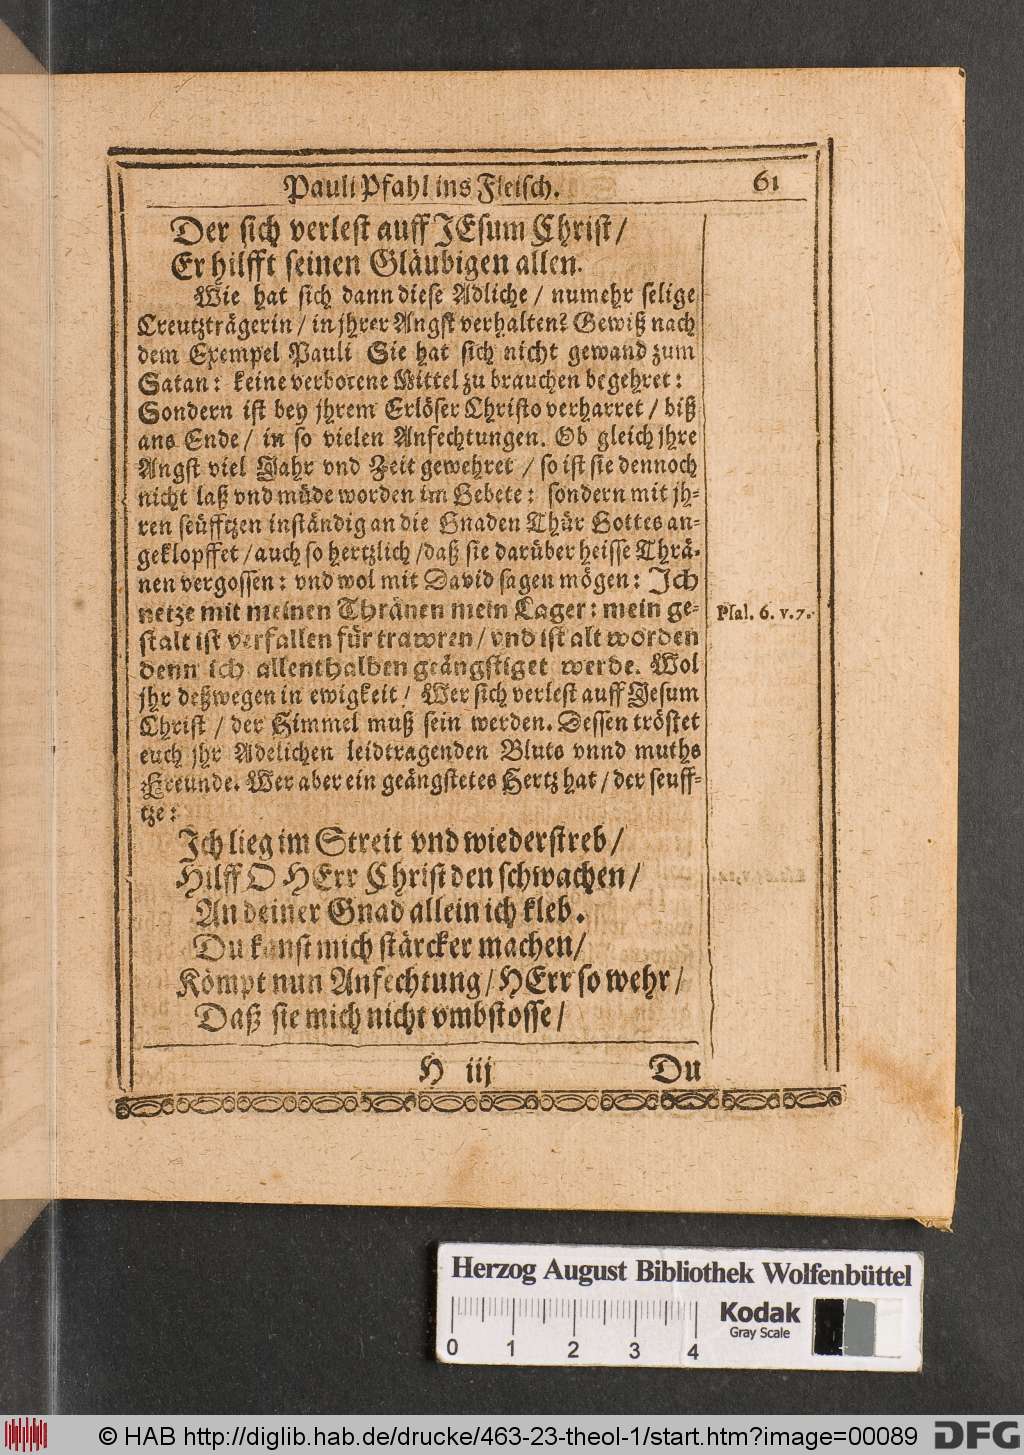 Pauli Pfahl ins Fleisch. 61
Der sich verlest auff JEsum Christ /
Er hilfft seinen Gläubigen allen.
Wie hat sich dann diese Adliche / numehr selige
Creutzträgerin / in jhrer Angst verhalten? Gewiß nach
dem Exempel Pauli Sie hat sich nicht gewand zum
Satan: keine verbotene Mittel zu brauchen begehret:
Sondern ist bey jhrem Erlöser Christo verharret / biß
ans Ende / in so vielen Anfechtungen. Ob gleich jhre
Angst viel Jahr vnd Zeit gewehret / so ist sie dennoch
nicht laß vnd müde worden im Gebete: sondern mit jh-
ren seüfftzen inständig an die Gnaden Thür Gottes an-
geklopffet / auch so hertzlich / daß sie darüber heisse Thrä-
nen vergossen: vnd wol mit David sagen mögen: Jch
netze mit meinen Thränen mein Lager: mein ge-
Psal. 6. v. 7.
stalt ist verfallen für trawren / vnd ist alt worden
denn ich allenthalben geängstiget werde. Wol
jhr deßwegen in ewigkeit / Wer sich verlest auff Jesum
Christ / der Himmel muß sein werden. Dessen tröstet
euch jhr Adelichen leidtragenden Bluts vnnd muths
Freunde. Wer aber ein geängstetes Hertz hat / der seuff-
tze:
Jch lieg im Streit vnd wiederstreb /
Hilff O HErr Christ den schwachen /
An deiner Gnad allein ich kleb.
Du kanst mich stärcker machen /
Kömpt nun Anfechtung / HErr so wehr /
Daß sie mich nicht vmbstosse /
H iij Du
Herzog August Bibliothek Wolfenbüttel
0 1 2 3 4
Kodak
Gray Scale
© HAB http://diglib.hab.de/drucke/463-23-theol-1/start.htm?image=00089
DFG